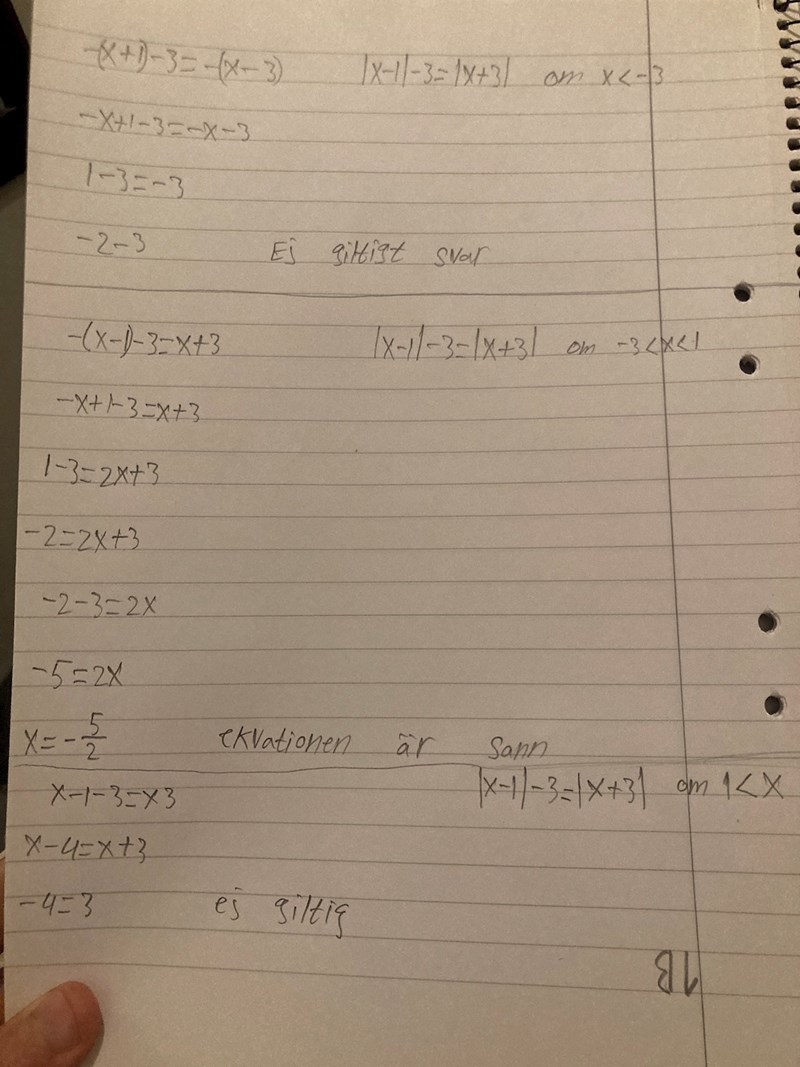 -(x+1)-3=-(x-3) |x-1|-3=|x+3| om x<-3
-x+1-3=-x-3
1-3=-3
-2-3 Ej giltigt svar
-(x-1)-3=x+3 |x-1|-3=|x+3| om -3<x<1
-x+1-3=x+3
1-3=2x+3
-2=2x+3
-2-3=2x
-5=2x
x=-5/2 ekvationen är sann
x-1-3=x3 |x-1|-3=|x+3| om 1<x
x-4=x+3
-4=3 ej giltig
1B